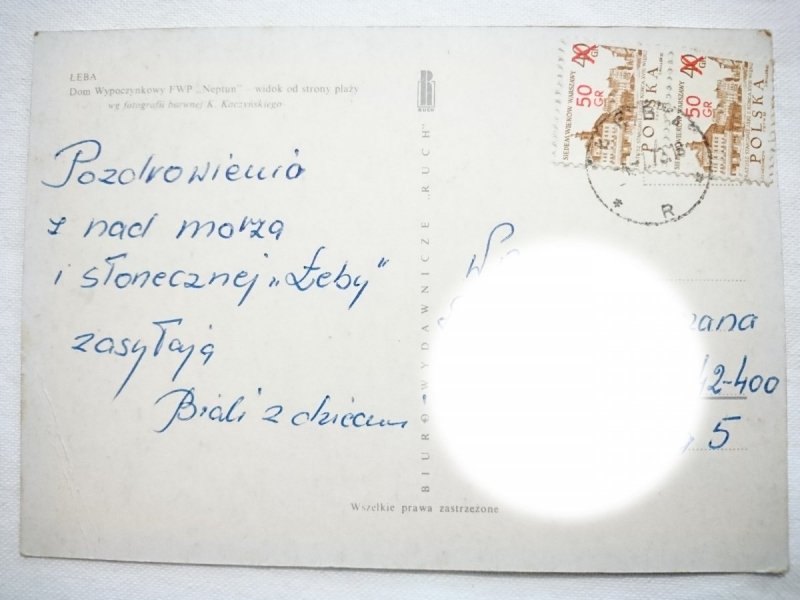 ŁEBA
Dom Wypoczynkowy FWP „Neptun" – widok od strony plaży
wg fotografii barwnej K. Kaczyńskiego
RUCH
Pozdrowienia
z nad morza
i słonecznej „Łeby"
zasyłają
Biali z dziećmi
BIURO WYDAWNICZE „RUCH"
Wszelkie prawa zastrzeżone
40 GR
50 GR
SIEDEM WIEKÓW WARSZAWY
POLSKA
40 GR
50 GR
SIEDEM WIEKÓW WARSZAWY
POLSKA
* R *
zana
42-400
5